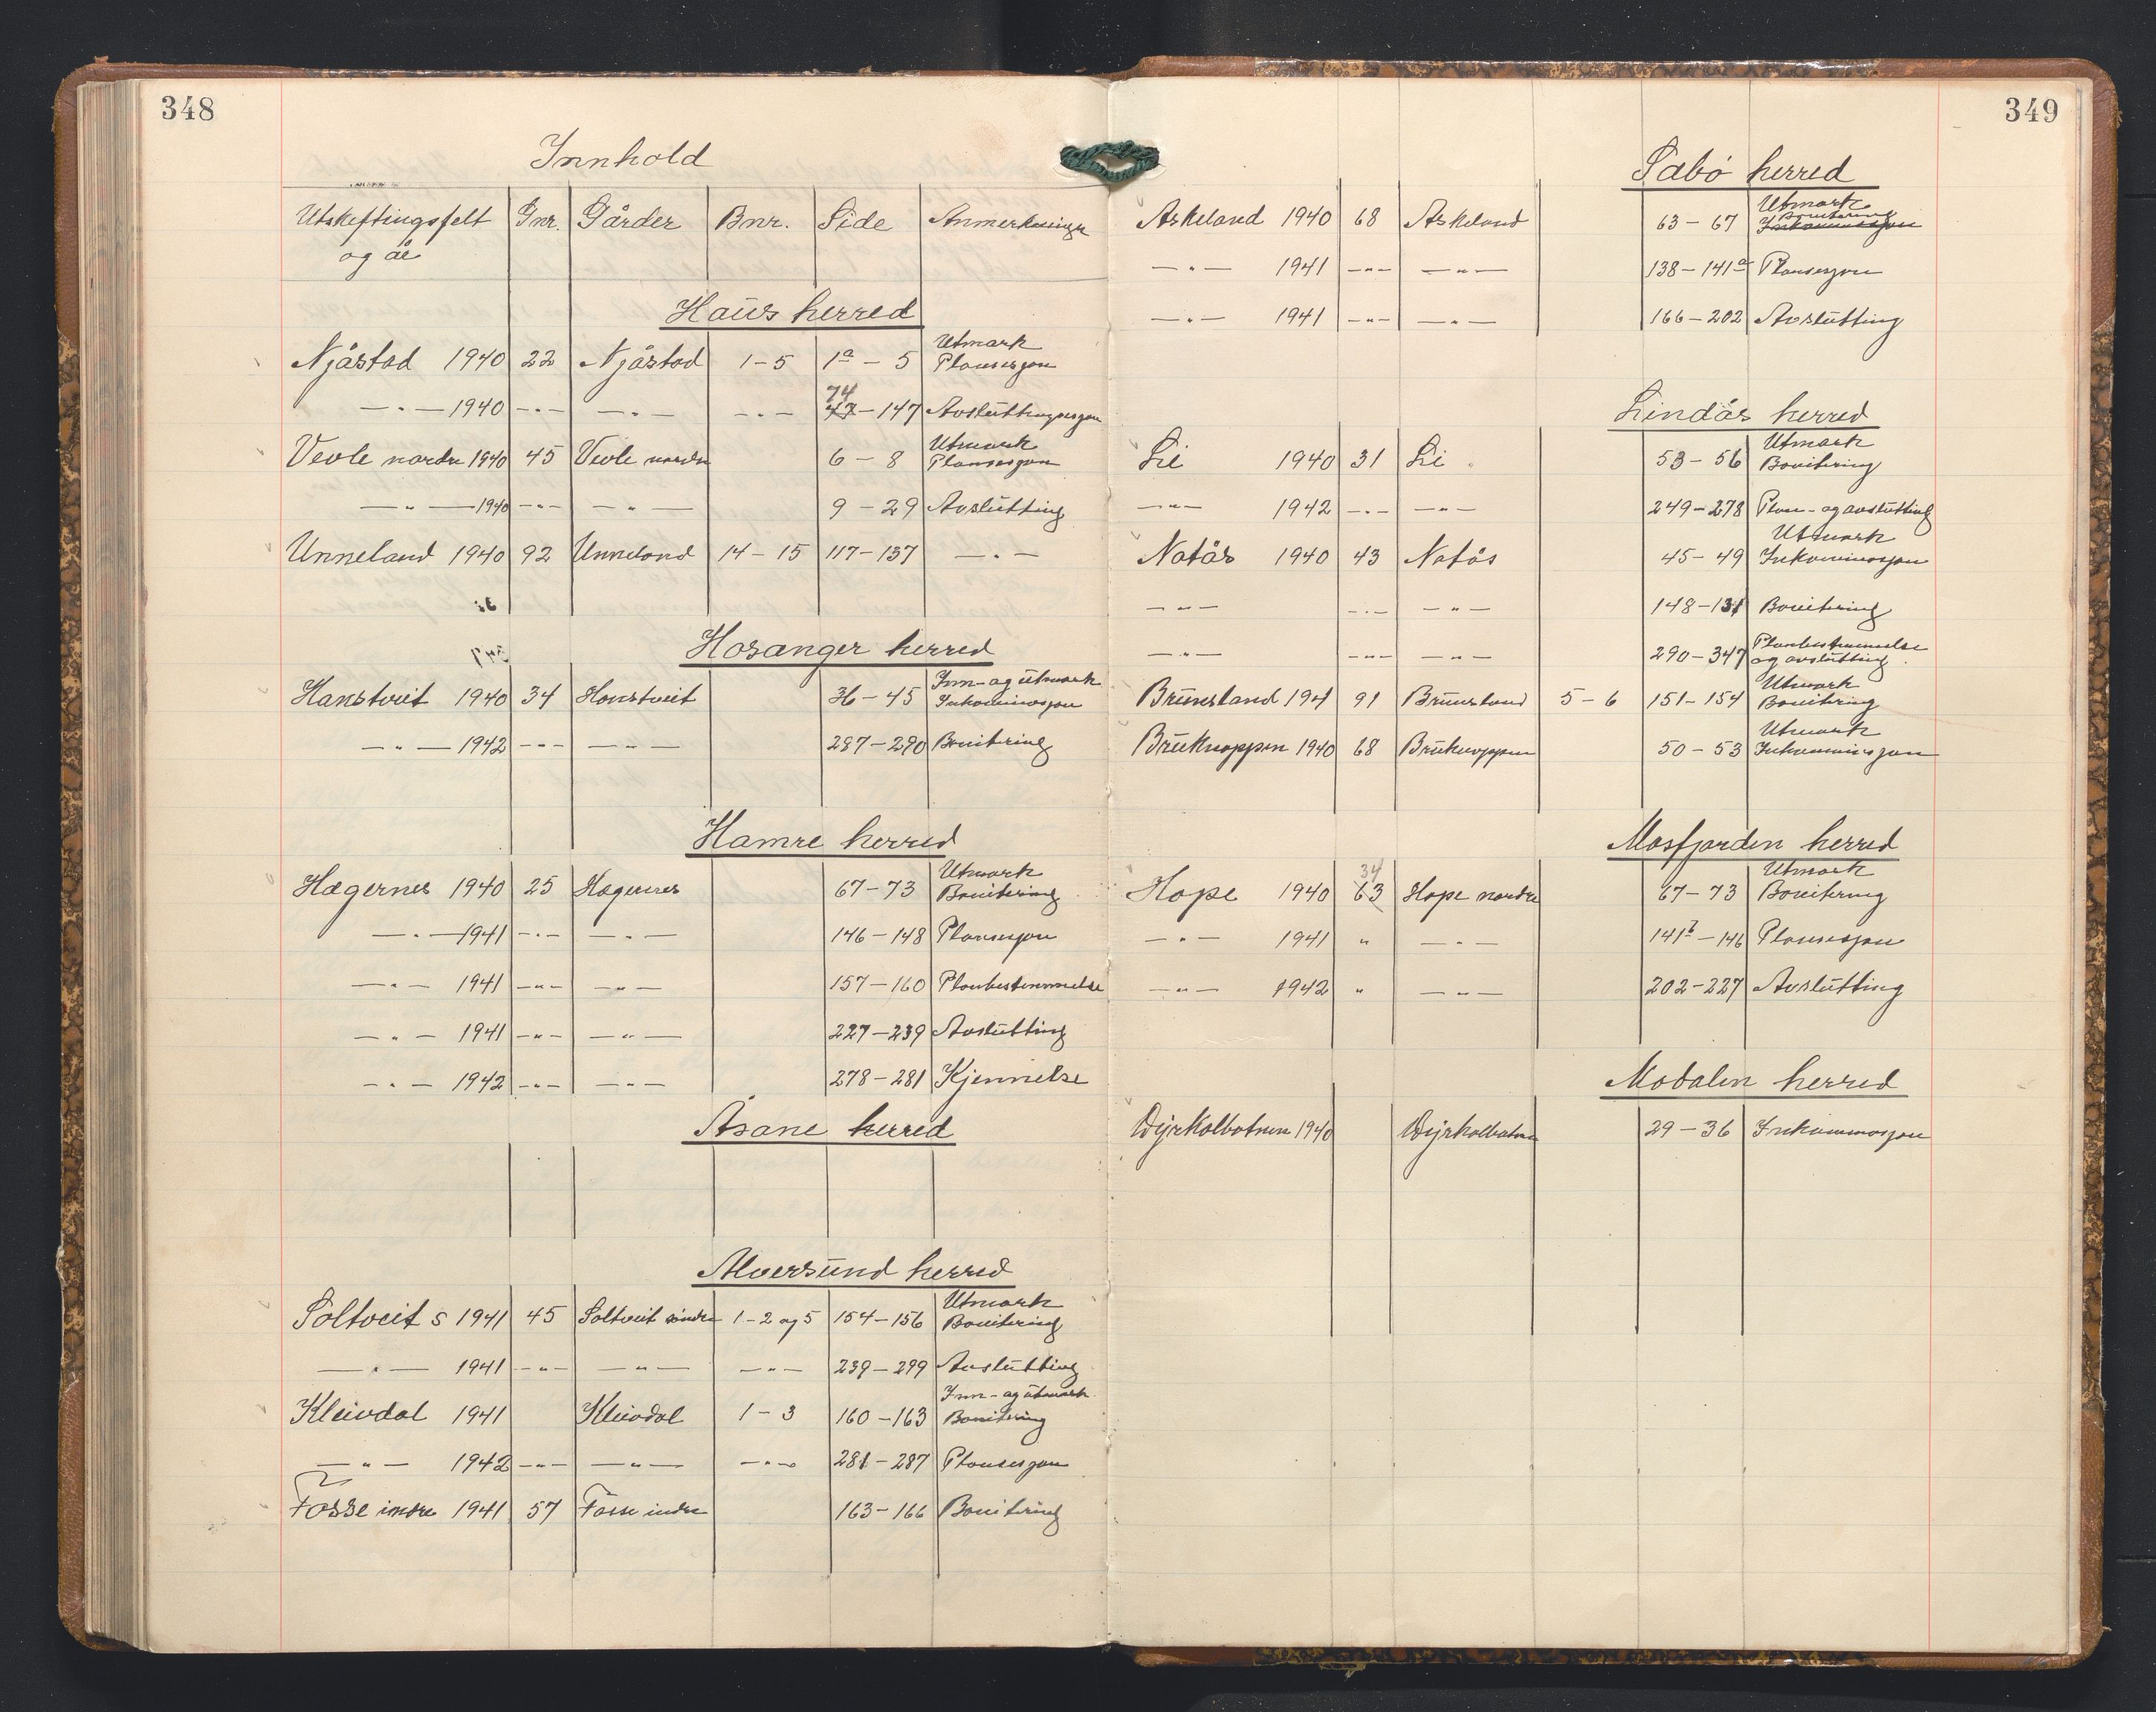 348
Innhold
Utskiftingsfelt og år Gnr. Gårder Bnr. Side Anmerkninger
Haus herred
Njåstad 1940 22 Njåstad 1-5 1a - 5 Utmark Plansesjon
— " — 1940 — " — — " — — " — 74 47 - 147 Avsluttingssesjon
Vevle nordre 1940 45 Vevle nordre 6 - 8 Utmark Plansesjon
— " — 1940 — " — — " — 9 - 29 Avslutting
Unneland 1940 92 Unneland 14 - 15 117-137 — " —
Hosanger herred
Hanstveit 1940 34 Hanstveit 36-45 Inn- og utmark Inkominasjon
— " — 1942 — " — — " — 287-290 Bonitering
Hamre herred
Hægernes 1940 25 Hægernes 67-73 Utmark Bonitering
— " — 1941 — " — — " — 146-148 Plansesjon
— " — 1941 — " — — " — 157-160 Planbestemmelse
— " — 1941 — " — — " — 227-239 Avslutting
— " — 1942 — " — — " — 278-281 Kjennelse
Åsane herred
Alversund herred
Soltveit s 1941 45 Soltveit søndre 1-2 og 5 154-156 Utmark Bonitering
— " — 1941 — " — — " — — " — 239-299 Avslutting
Kleivdal 1941 Kleivdal 1-3 160-163 Inn- og utmark Bonitering
— " — 1942 — " — — " — — " — 281-287 Plansesjon
Fosse indre 1941 57 Fosse indre 163-166 Bonitering
349
Sæbø herred
Askeland 1940 68 Askeland 63-67 Utmark Bonitering
— " — 1941 — " — — " — 138-141a Plansesjon
— " — 1941 — " — — " — 166-202 Avslutting
Lindås herred
Li 1940 31 Li 53-56 Utmark Bonitering
— " — 1942 — " — — " — 249-278 Plan- og avslutting
Natås 1940 43 Natås 45-49 Utmark Inkominasjon
— " — — " — — " — 148-151 Bonitering
— " — — " — — " — 290-347 Planbestemmelse og avslutting
Brunsland 1941 91 Brunsland 5-6 151-154 Utmark Bonitering
Bruknappen 1940 68 Bruknappen 50-53 Utmark Inkominasjon
Masfjorden herred
Hope 1940 34 63 Hope nordre 67-73 Utmark Bonitering
— " — 1941 " — " — 141b-146 Plansesjon
— " — 1942 " — " — 202-227 Avslutting
Modalen herred
Dyrkolbotnen 1940 Dyrkolbotnen 29-36 Inkominasjon